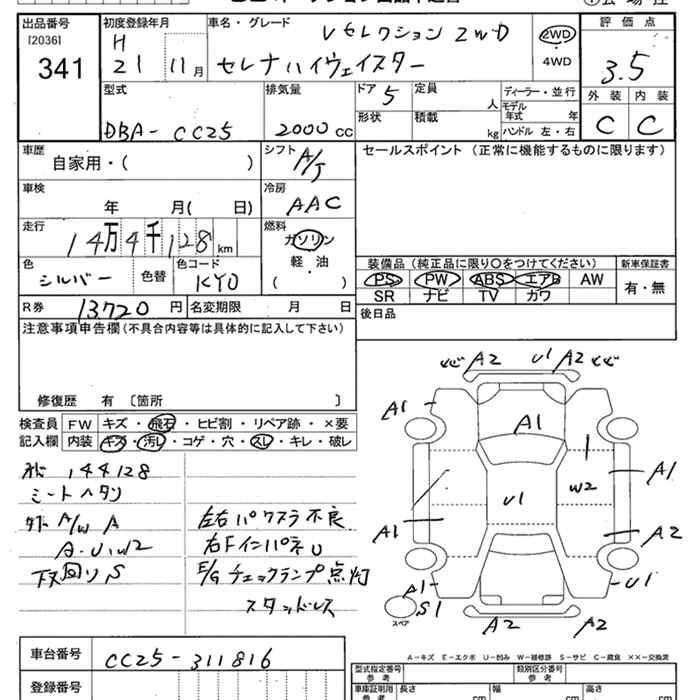 出品番号
[2036]
341
初度登録年月
H 21 11月
車名・グレード
Vセレクション 2WD
セレナハイウェイスター
2WD
・
4WD
評価点
3.5
外装 内装
C C
型式
DBA- CC25
排気量
2000 cc
ドア 5
定員
人
形状
積載
kg
ディーラー・並行
モデル年式 年
ハンドル 左・右
車歴
自家用・( )
シフト
A/T
セールスポイント (正常に機能するものに限ります)
車検
年 月( 日)
冷房
AAC
走行
14万4千128km
燃料
ガソリン
軽・油
( )
色
シルバー
色替
色コード
KY0
装備品 (純正品に限り○をつけてください)
新車保証書
PS PW ABS エアB AW
SR ナビ TV カワ
有・無
R券 13720円
名変期限 月 日
後日品
注意事項申告欄(不具合内容等は具体的に記入して下さい)
修復歴 有 〔箇所 〕
検査員記入欄
FW キズ・飛石・ヒビ割・リペア跡・×要
内装 キズ・汚レ・コゲ・穴・スレ・キレ・破レ
144128
シートヘタリ
外 A/W A
A・U・W2
下回りS
左右パワスラ不良
右Fインパネ U
E/G チェックランプ点灯
スタッドレス
A2 U1 A2
A1 A1
A1
U1 W2
A1 A2
A1 U1
S1
スペア
A2 A2
A-キズ E-エクボ U-凹み W-補修跡 S-サビ C-腐食 ××-交換済
車台番号
CC25-311816
登録番号
型式指定番号 参考
類別区分番号 参考
車庫証明用 参考
長さ cm
幅 cm
高さ cm